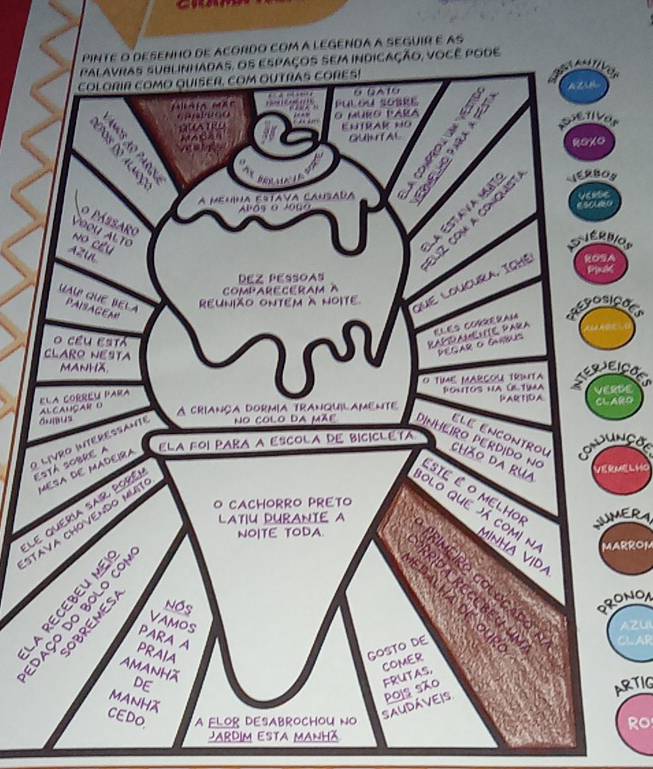 PINTE O DESENHO DE ACORDO COM A LEGENDA A SEGUIR E AS
PALAVRAS SUBLINHADAS. OS ESPAÇOS SEM INDICAÇÃO, VOCÊ PODE
COLORIR COMO QUISER, COM OUTRAS CORES!
VAMOS AO PARQUE
DEPOIS DO ALMOÇO.
MINHA MÃE
COMPROU
QUATRO
MAÇÃS
VERDES.
O GATO
PULOU SOBRE
O MURO PARA
ENTRAR NO
QUINTAL.
ELA COMPROU UM VESTIDO
VERMELHO PARA A FESTA.
O SOL BRILHAVA FORTE.
A MENINA ESTAVA CANSADA
APÓS O JOGO.
ELA ESTAVA MUITO
FELIZ COM A CONQUISTA.
O PÁSSARO
VOOU ALTO
NO CÉU
AZUL.
DEZ PESSOAS
COMPARECERAM À
REUNIÃO ONTEM À NOITE.
QUE LOUCURA, TCHÊ!
UAU! QUE BELA
PAISAGEM!
ELES CORRERAM
RAPIDAMENTE PARA
PEGAR O ÔNIBUS.
O CÉU ESTÁ
CLARO NESTA
MANHÃ.
O TIME MARCOU TRINTA
PONTOS NA ÚLTIMA
PARTIDA.
ELA CORREU PARA
ALCANÇAR O
ÔNIBUS.
A CRIANÇA DORMIA TRANQUILAMENTE
NO COLO DA MÃE.
ELE ENCONTROU
DINHEIRO PERDIDO NO
CHÃO DA RUA.
O LIVRO INTERESSANTE
ESTÁ SOBRE A
MESA DE MADEIRA.
ELA FOI PARA A ESCOLA DE BICICLETA.
ESTE É O MELHOR
BOLO QUE JÁ COMI NA
MINHA VIDA.
ELE QUERIA SAIR, PORÉM
ESTAVA CHOVENDO MUITO.
O CACHORRO PRETO
LATIU DURANTE A
NOITE TODA.
O PRIMEIRO COLOCADO NA
CORRIDA RECEBEU UMA
MEDALHA DE OURO.
ELA RECEBEU MEIO
PEDAÇO DO BOLO COMO
SOBREMESA.
NÓS
VAMOS
PARA A
PRAIA
AMANHÃ
DE
MANHÃ
CEDO.
A FLOR DESABROCHOU NO
JARDIM ESTA MANHÃ.
GOSTO DE
COMER
FRUTAS,
POIS SÃO
SAUDÁVEIS.
SUBSTANTIVOS
AZUL
ADJETIVOS
ROXO
VERBOS
VERDE
ESCURO
ADVÉRBIOS
ROSA
PINK
PREPOSIÇÕES
AMARELO
INTERJEIÇÕES
VERDE
CLARO
CONJUNÇÕE
VERMELHO
NUMERA
MARROM
PRONOM
AZUL
CLAR
ARTIG
ROS